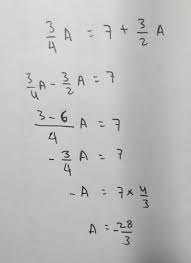 3/4 A = 7 + 3/2 A
3/4 A - 3/2 A = 7
3-6/4 A = 7
- 3/4 A = 7
-A = 7 × 4/3
A = -28/3